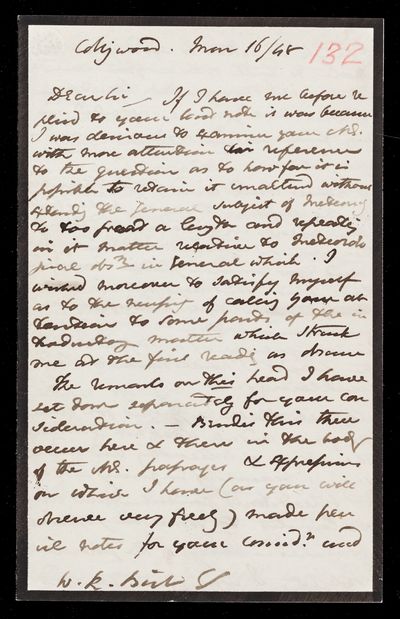 Collingwood. Mar 16/48
132
Dear Sir — If I have not before re
plied to your last note it was because
I was desirous to examine your MS.
with more attention in reference
to the question as to how far it is
possible to retain it unaltered without
the General subject of Meteorology
to too great a length and repeating
in it matter relative to Meteorolo
gical obsns in General which. I
wished moreover to satisfy myself
as to the necessity of calling your at
tention to some parts of the in
troductory matter which struck
me at the first reading as obscure
The remarks on this head I have
set down separately for your con
sideration. — Besides this there
occur here & there in the body
of the MS. passages & expressions
on which I have (as you will
observe very freely) made pen
cil notes for your considn and
W. R. Birt